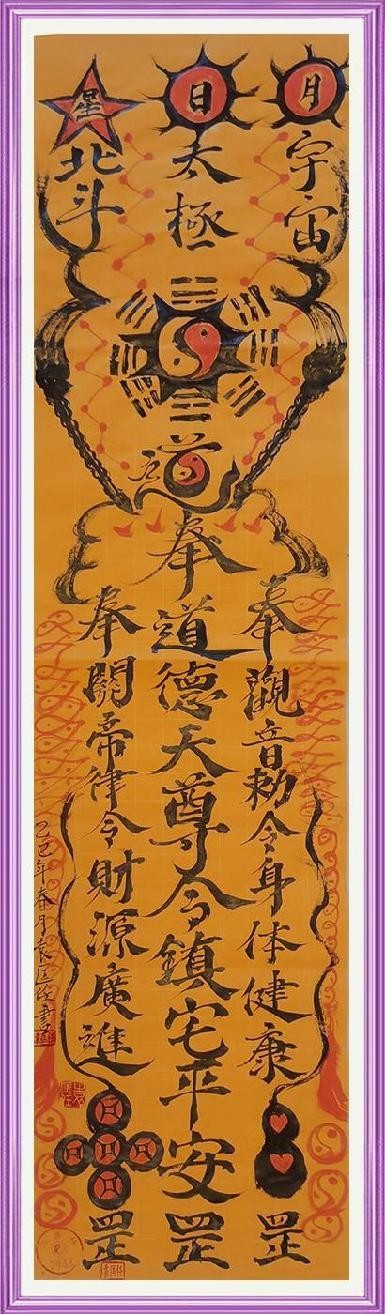 月
宇宙
日
太極
星
北斗
道
奉觀音勅令身体健康罡
奉道德天尊令鎮宅平安罡
奉關帝律令財源廣進罡
乙巳年春月袁匡書